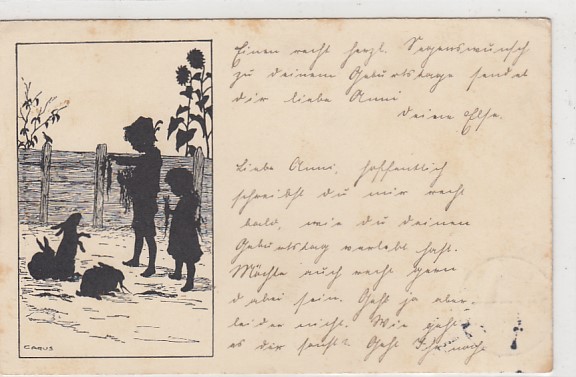 Einen recht herzl. Segenswunsch
zu deinem Geburtstage sendet
dir liebe Anni
deine Else.
Liebe Anni, hoffentlich
schreibst du mir recht
bald, wie du deinen
Geburtstag verlebt hast.
Möchte auch recht gern
dabei sein. Geht ja aber
leider nicht. Wie geht
es dir sonst? Geht
CARUS